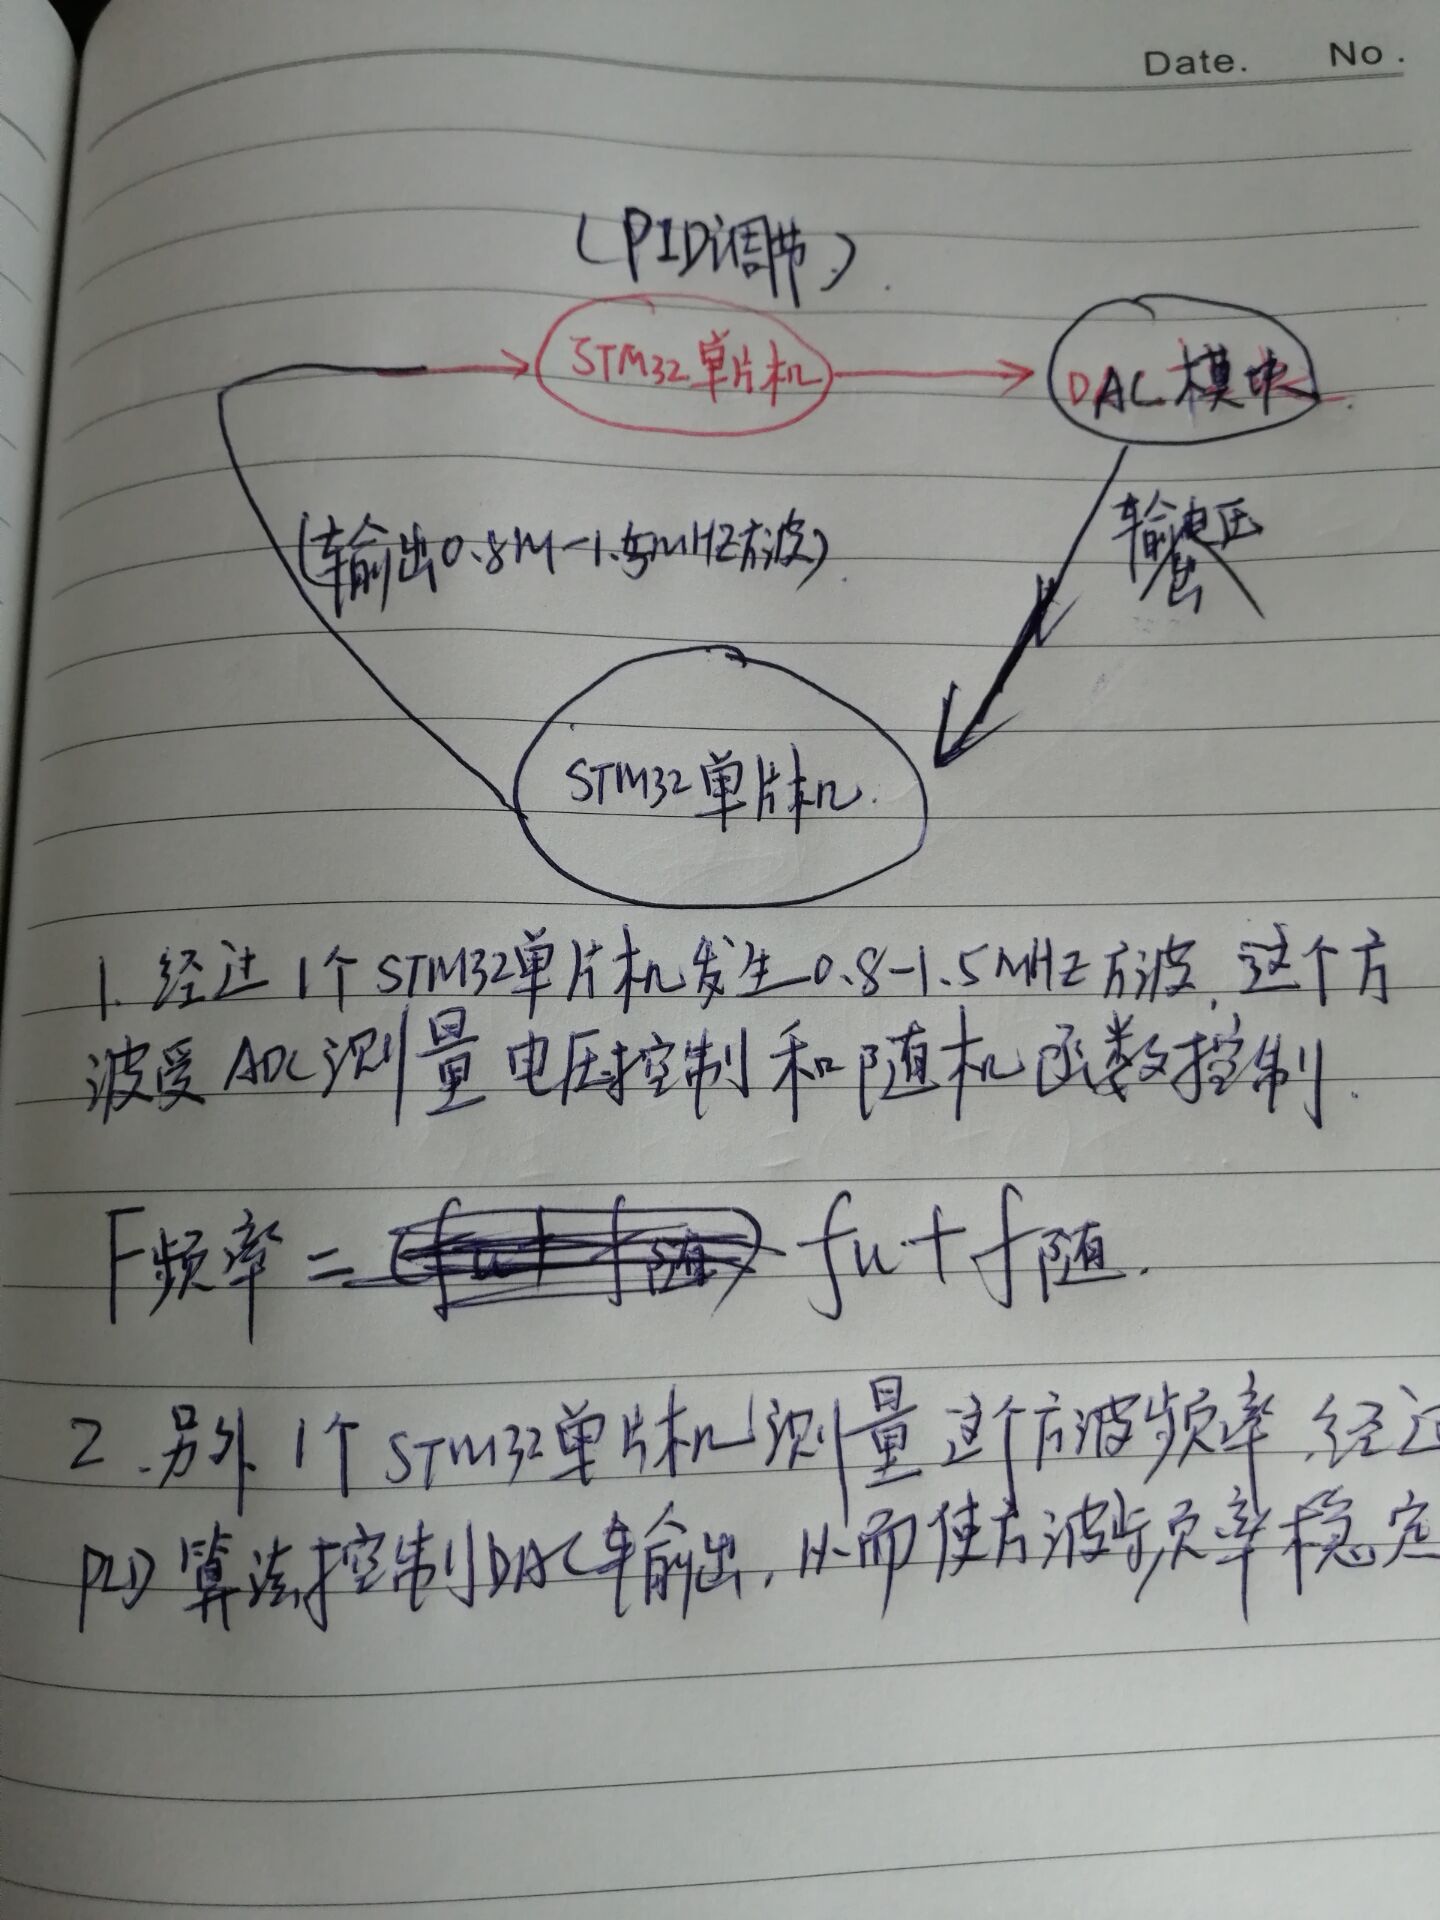 Date. No.
(PID调节)
STM32单片机
DAC模块
(输出0.8M-1.5MHZ方波)
输出电压
STM32单片机.
1. 经过1个STM32单片机发生0.8-1.5MHZ方波, 这个方
波受ADC测量电压控制和随机函数控制.
F频率= fu+f随.
2. 另外1个STM32单片机测量这个方波频率, 经过
PID算法控制DAC输出, 从而使方波频率稳定